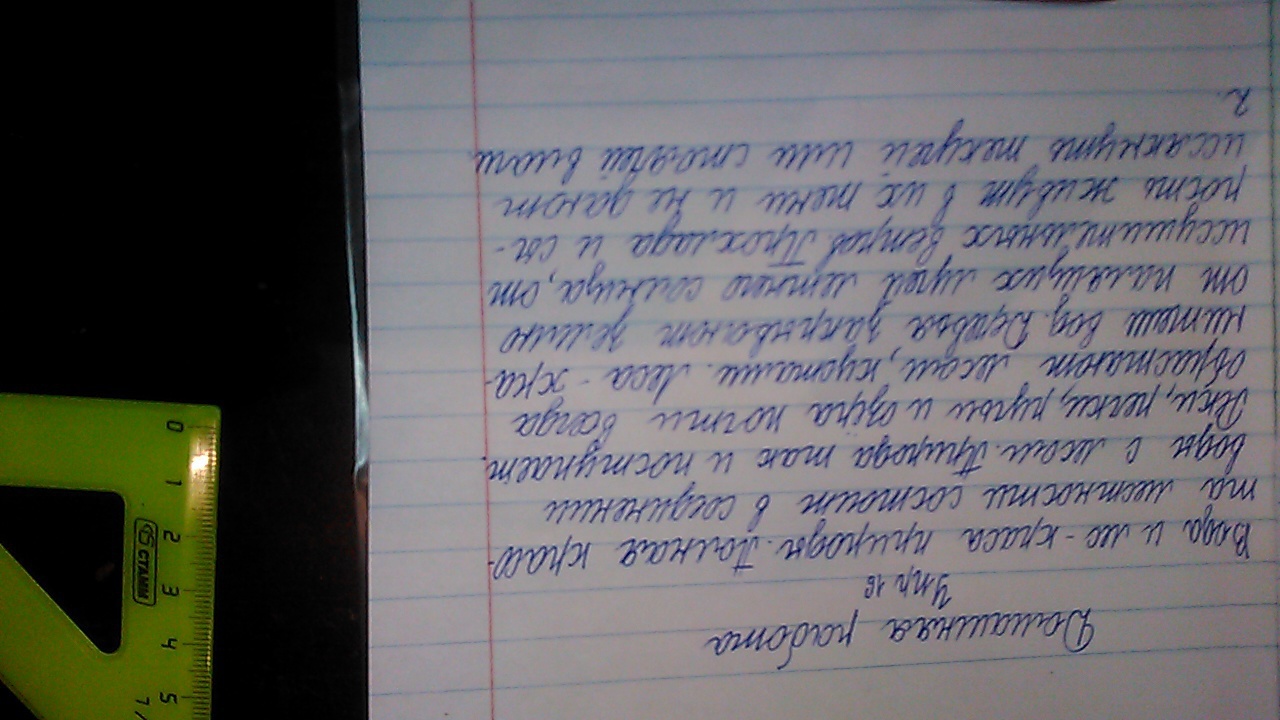 Домашняя работа
Упр 16
Вода и лес - краса природы. Полная красо-
та местности состоит в соединении
воды с лесом. Природа так и поступает.
Реки, речки, ручьи и озёра почти всегда
обрастают лесом, кустами. Леса - хра-
нители вод. Деревья закрывают землю
от палящих лучей летнего солнца, от
иссушительных ветров. Прохлада и сы-
рость живут в их тени и не дают
иссякнуть текучей или стоячей влаги.
2.
0
1
2
3
4
5
СТАММ